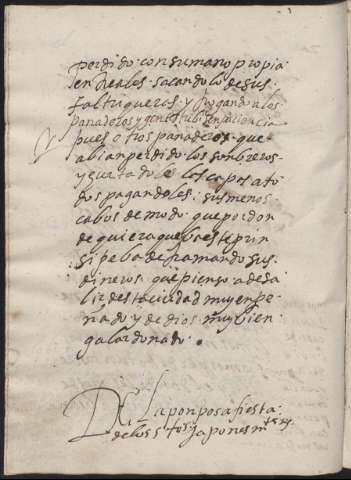 perdido con su mano propia
en Reales sacandolo de sus
faltriqueras y pagando a los
panaderos y gente
pues otros panaderos que
abian perdido los sombreros
y gurtadole los capos a to
dos pagandoles sus menos
cabos de modo que por don
de quiera que ba este prin
sipe ba deramando sus
dineros que pienso a de sa
lir desta ciudad muy enpe
ñado y de dios muy bien
galardonado.
De La ponposa fiesta
de los stos japones mres